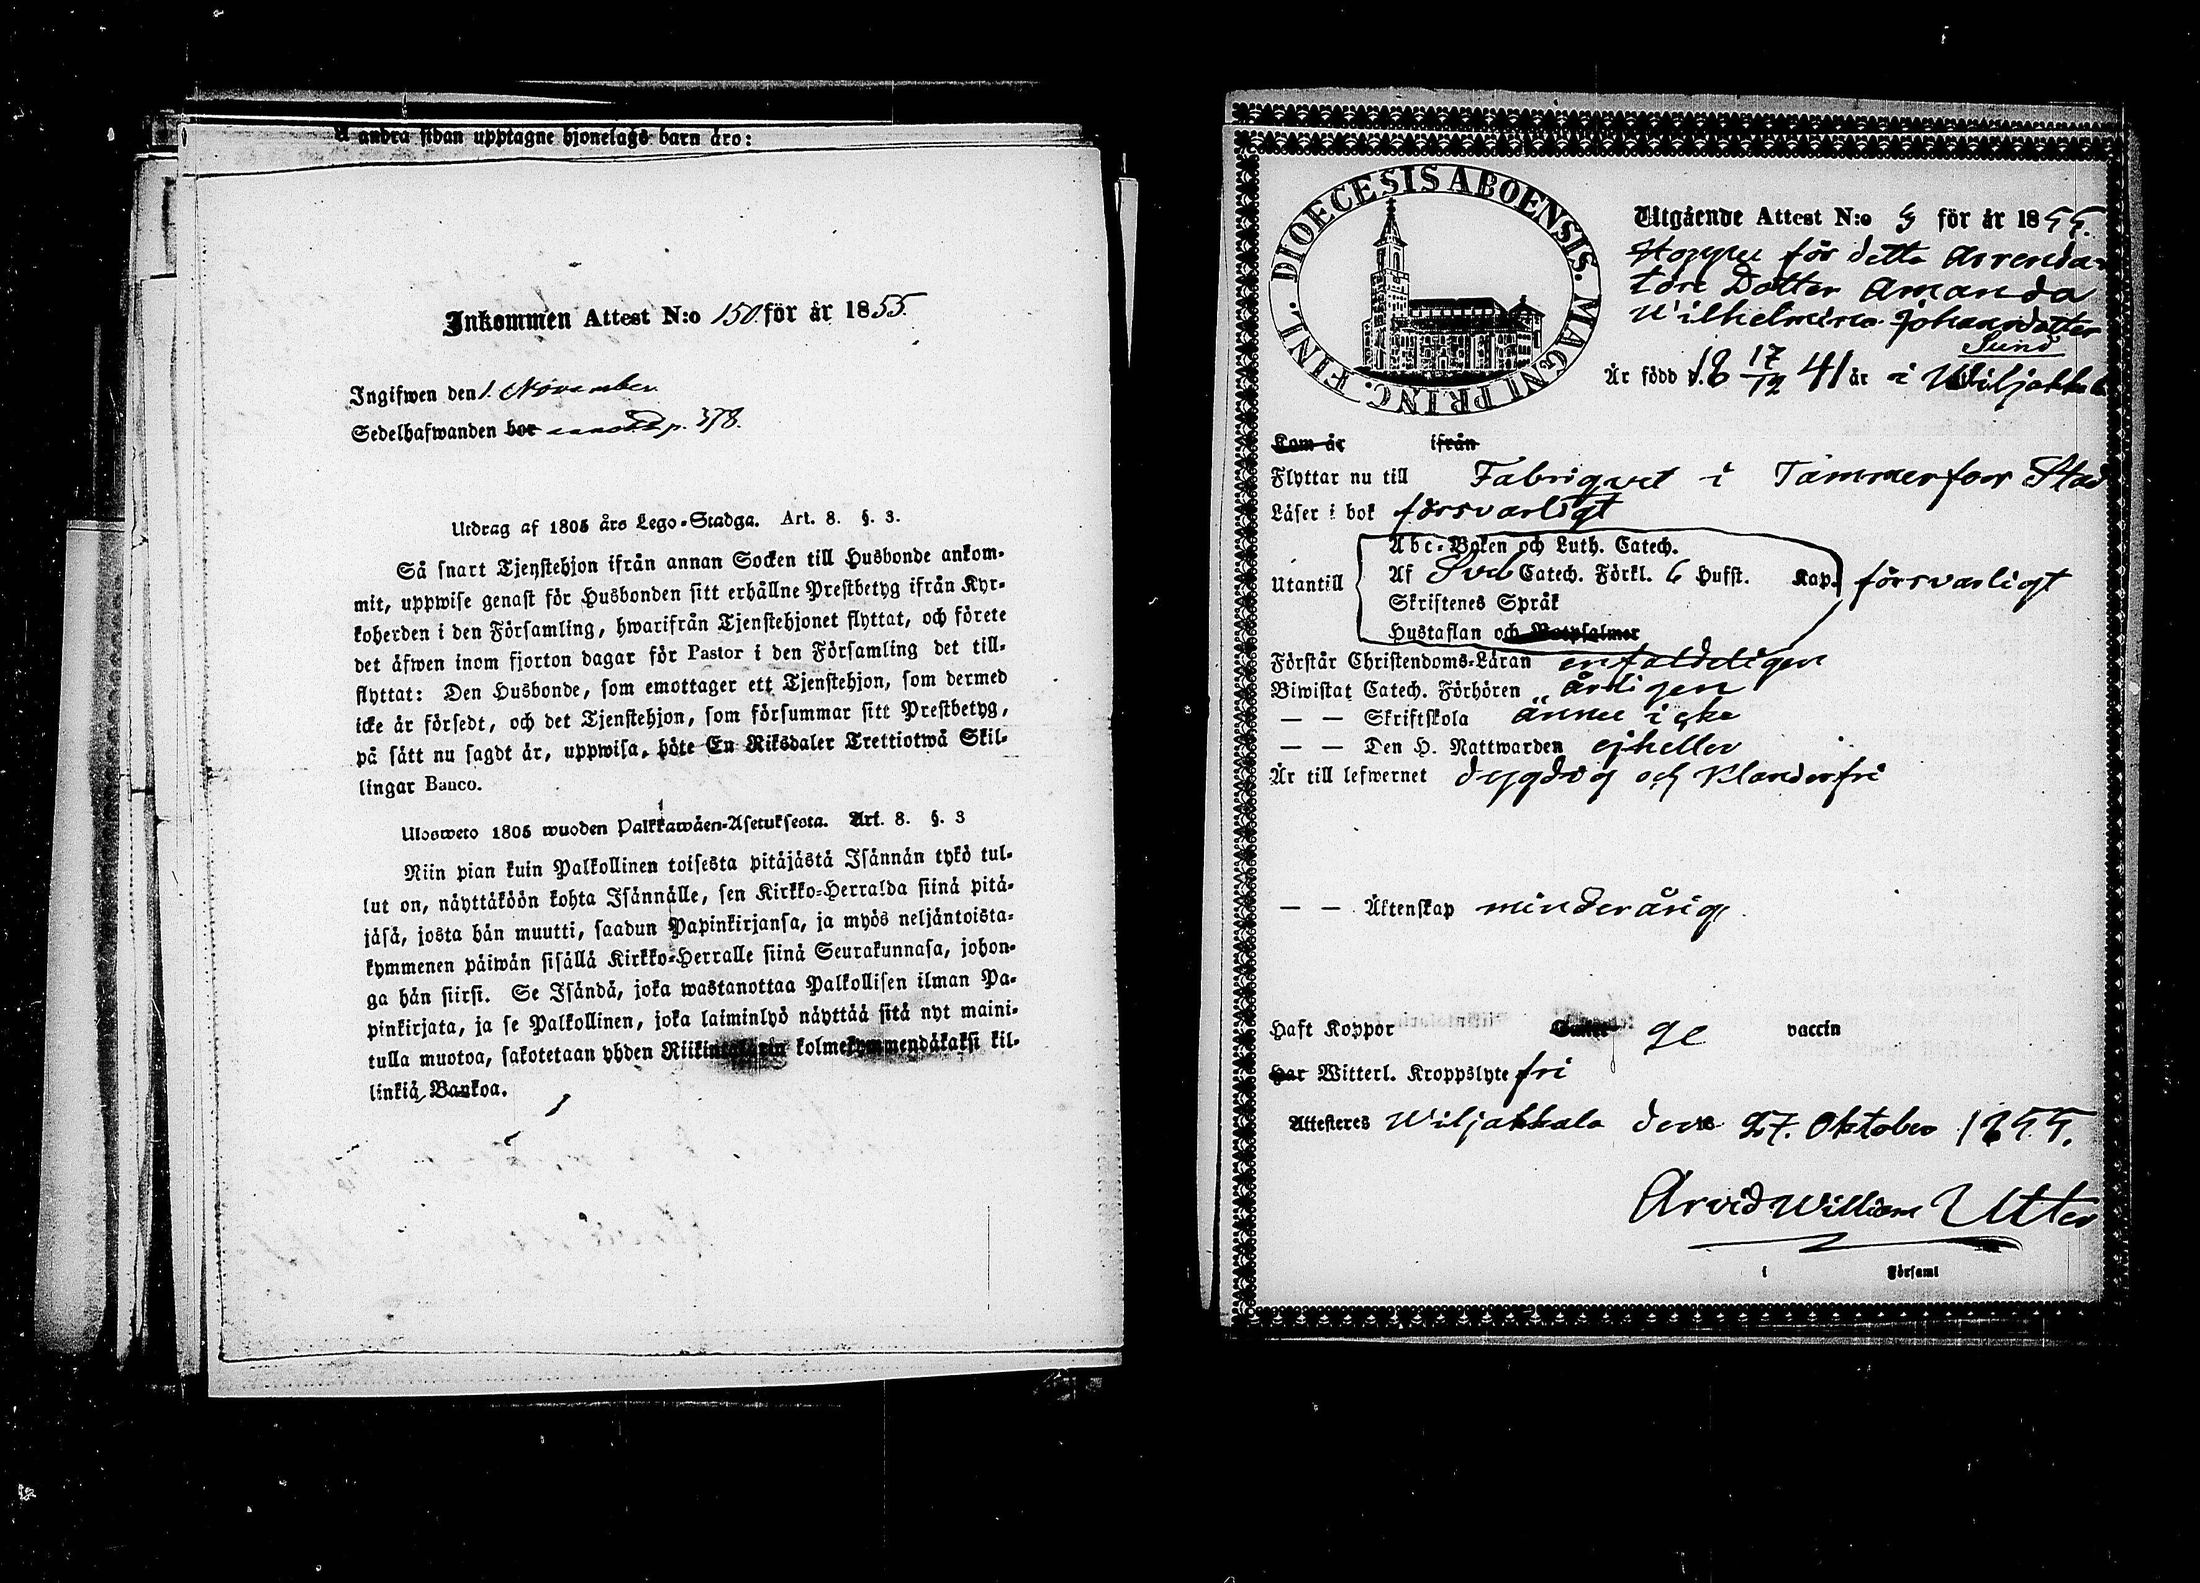 å andra sidan upptagne hjonelags barn äro:
Inkommen Attest N:o 150 för år 1855.
Ingifwen den 1. November
Sedelhafwanden bor p. 378.
Utdrag af 1805 års Lego-Stadga. Art. 8. §. 3.
Så snart Tjenstehjon ifrån annan Socken till Husbonde ankom-
mit, uppwise genast för Husbonden sitt erhållne Prestbetyg ifrån Kyr-
koherden i den Församling, hwarifrån Tjenstehjonet flyttat, och förete
det äfwen inom fjorton dagar för Pastor i den Församling det till-
flyttat: Den Husbonde, som emottager ett Tjenstehjon, som dermed
icke är försedt, och det Tjenstehjon, som försummar sitt Prestbetyg,
på sätt nu sagdt är, uppwisa, böte En Riksdaler Trettiotwå Skil-
lingar Banco.
Ulosweto 1805 wuoden Palkkawäen-Asetuksesta. Art. 8. §. 3
Niin pian kuin Palkollinen toisesta pitäjästä Isännän tykö tul-
lut on, näyttäköön kohta Isännälle, sen Kirkko-Herralda siinä pitä-
jäsä, josta hän muutti, saadun Papinkirjansa, ja myös neljäntoista-
kymmenen päiwän sisällä Kirkko-Herralle siinä Seurakunnasa, johon-
ga hän siirsi. Se Isändä, joka wastanottaa Palkollisen ilman Pa-
pinkirjata, ja se Palkollinen, joka laiminlyö näyttää sitä nyt maini-
tulla muotoa, sakotetaan yhden Riikintalarin kolmekymmendäkaksi kil-
linkiä Bankoa.
DIOECESIS ABOENSIS. MAGNI PRINC. FINL.
Utgående Attest N:o 5 för år 1855.
Hoppu för detta Arrenda-
tors Dotter Amanda
Wilhelmina Johansdotter
Sund
Är född d. 18 17/12 41 är i Wiljakkala
Kom år ifrån
Flyttar nu till Fabriquet i Tammerfors Stad
Läser i bok försvarligt
Utantill
Abc-Boken och Luth. Catech.
Af Sveb Catech. Förkl. 6 Hufst. Kap. försvarligt
Skriftenes Språk
Hustaflan och Botpsalmer
Förstår Christendoms-Läran enfaldeligen
Biwistat Catech. Förhören årligen
— — Skriftskola ännu icke
— — Den H. Nattwarden ejheller
Är till lefwernet dygdig och klanderfri
— — Äktenskap minderårig.
Haft Koppor ge vaccin
Har Witterl. Kroppslyte fri
Attesteres Wiljakkala den 27. Oktober 1855.
Arvid William Utter
i Församl